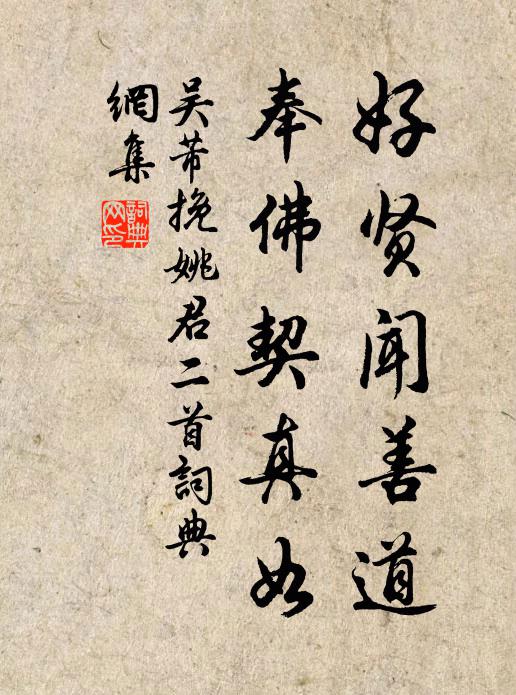 好贤闻善道
奉佛契真如
吴芾挽姚君二首詞典
網集
詞典
网印